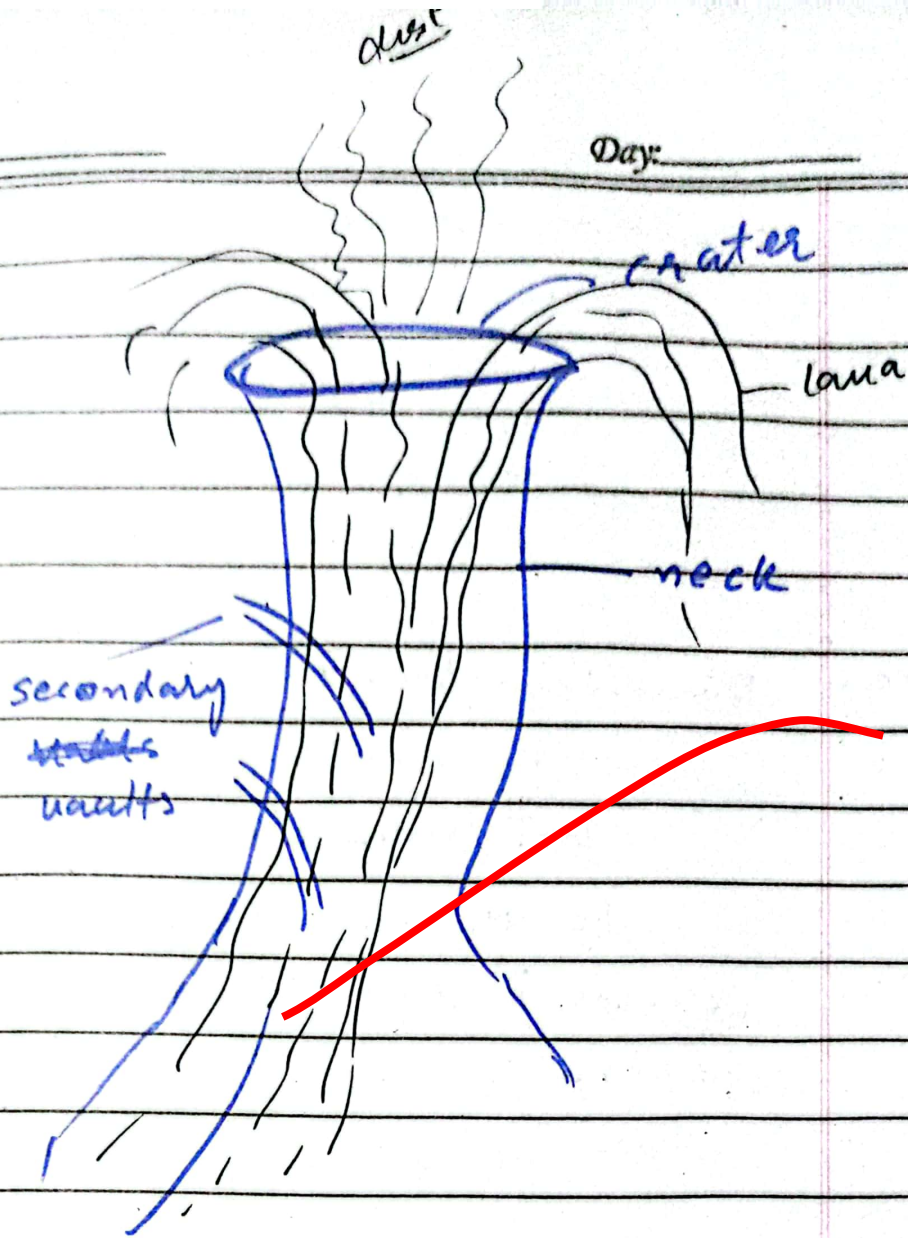 dust
Day:
crater
lava
neck
secondary
vaults